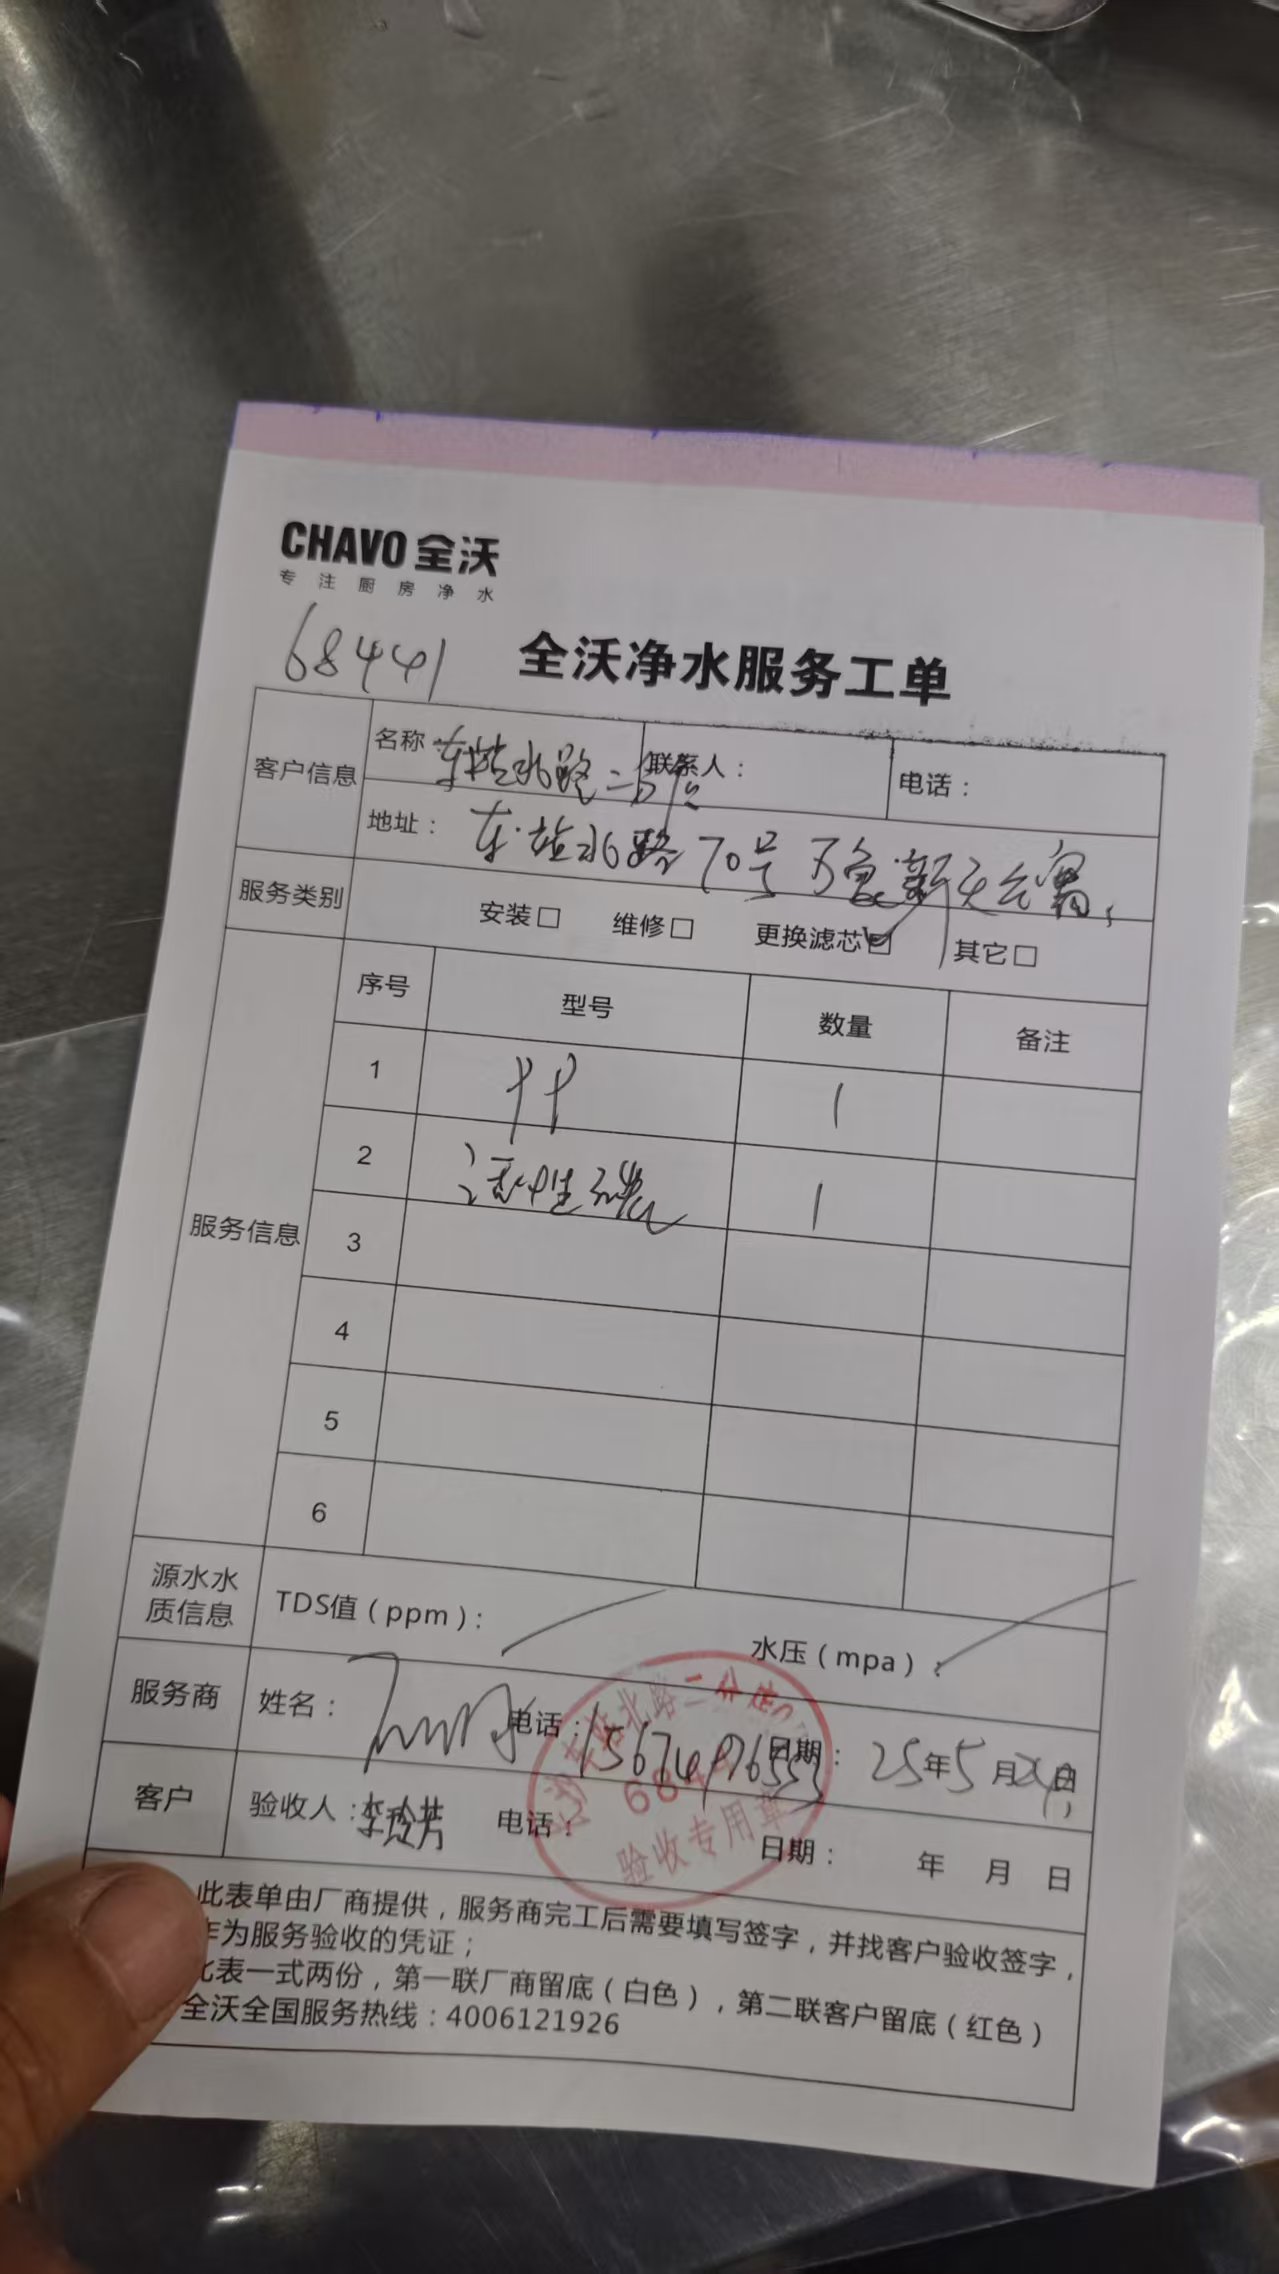 CHAVO 全沃
专注厨房净水
68441
全沃净水服务工单
客户信息
名称 东站北路二分店
联系人：
电话：
地址： 东站北路70号万象新天公寓
服务类别
安装□ 维修□ 更换滤芯☑ 其它□
服务信息
序号 型号 数量 备注
1 PP 1
2 活性碳 1
3
4
5
6
源水水质信息
TDS值（ppm）：
水压（mpa）：
服务商
姓名： 电话： 日期： 25年5月 日
东站北路二分店
验收专用章
客户
验收人：李玲芳 电话： 日期： 年 月 日
此表单由厂商提供，服务商完工后需要填写签字，并找客户验收签字，
作为服务验收的凭证；
此表一式两份，第一联厂商留底（白色），第二联客户留底（红色）
全沃全国服务热线：4006121926